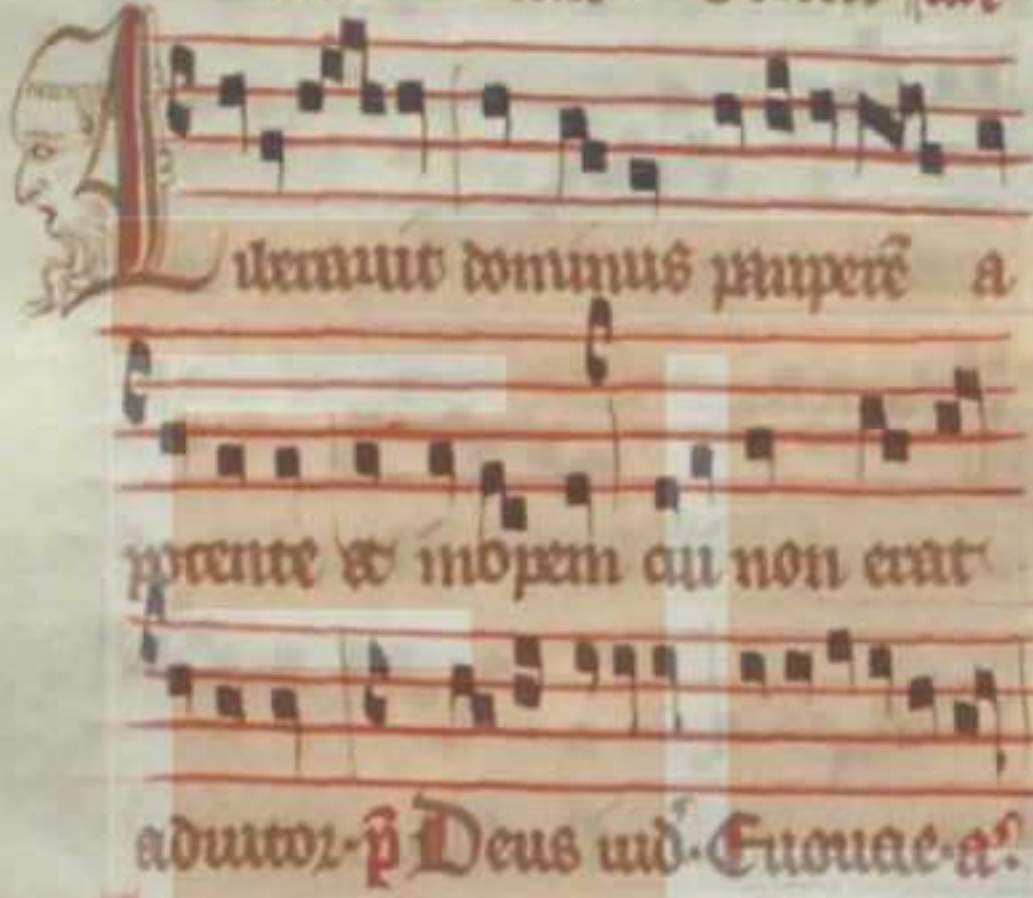 Liberauit dominus pauperē a
potente & inopem cui non erat
adiutor. p̄ Deus iud. Euouae. a͛.